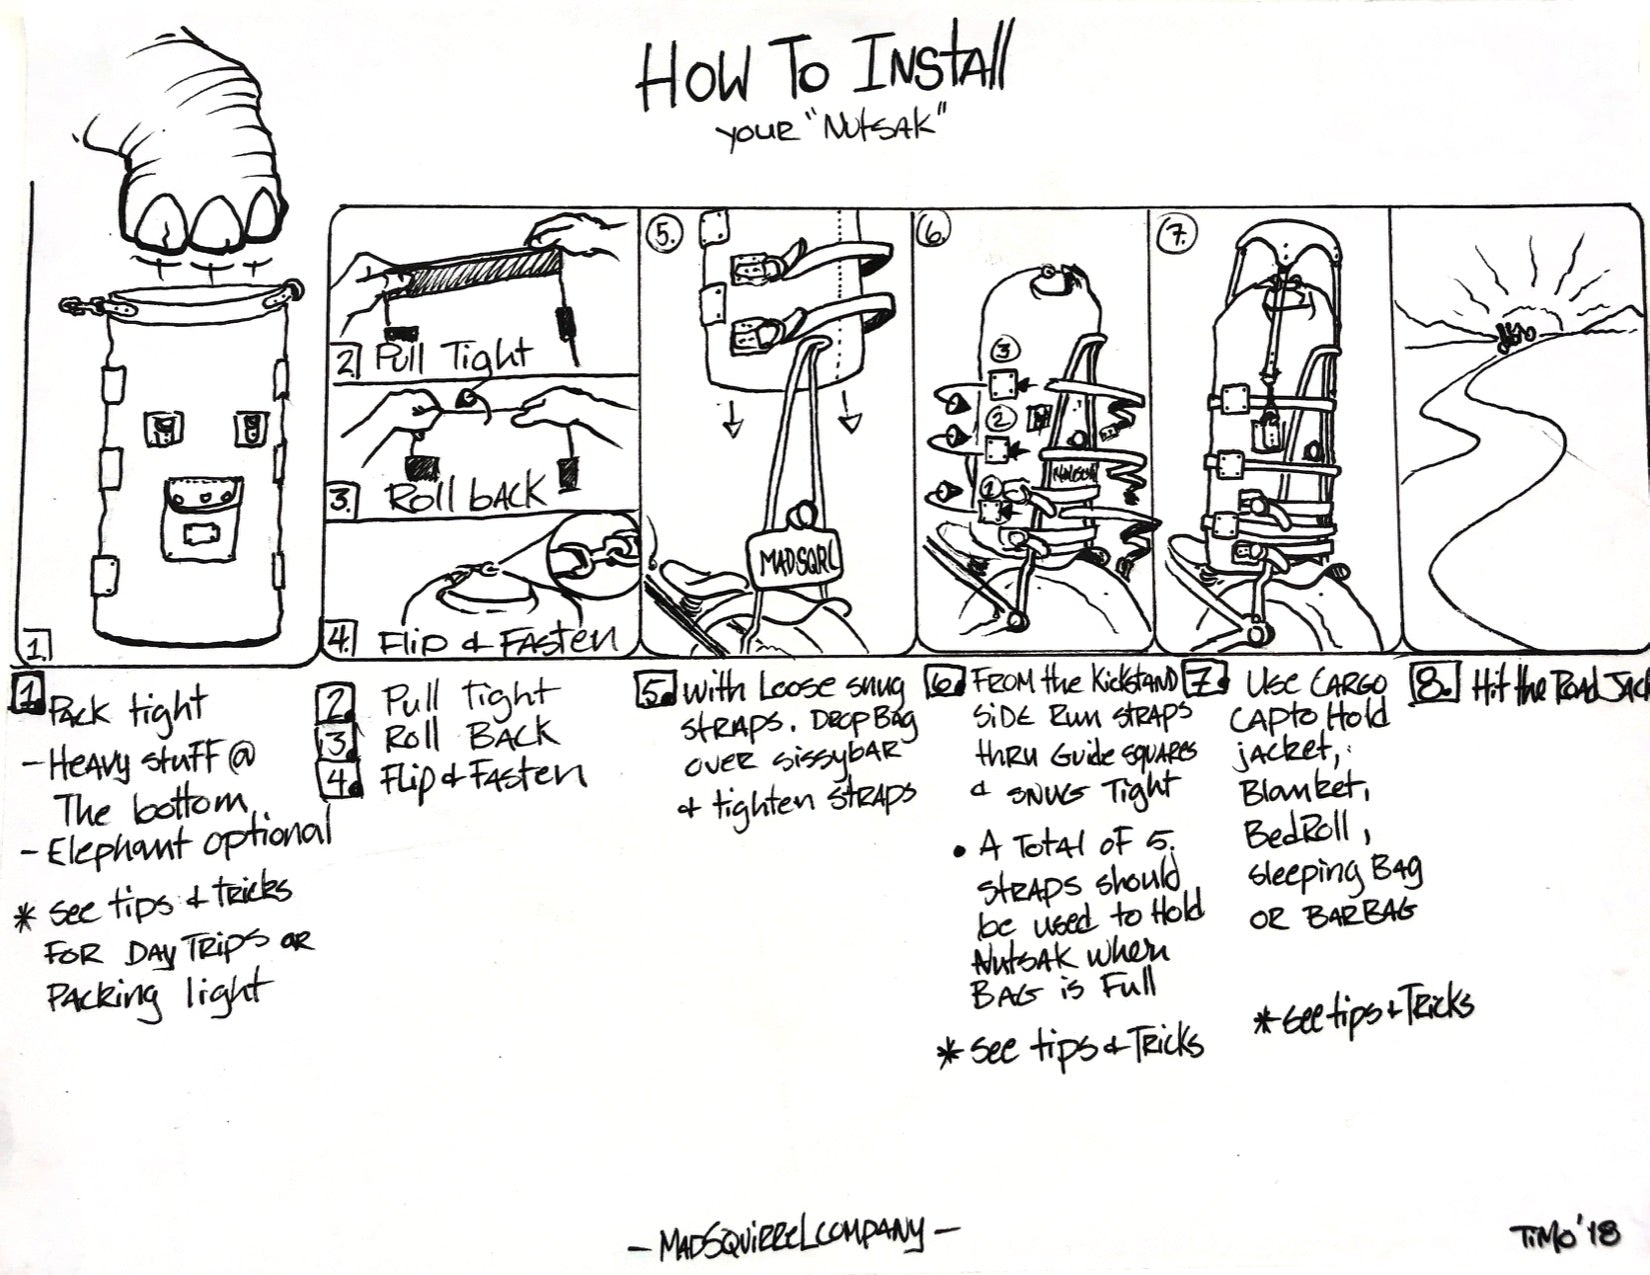 How To Install
your "Nutsak"
1.
2. Pull Tight
3. Roll back
4. Flip & Fasten
5.
MADSQRL
6.
3
2
1
7.
1. Pack tight
- Heavy stuff @
The bottom
- Elephant optional
* see tips & tricks
For Day Trips or
Packing light
2. Pull Tight
3. Roll Back
4. Flip & Fasten
5. With Loose snug
straps. Drop Bag
over sissybar
& tighten straps
6. From the Kickstand
side Run straps
thru Guide squares
& snug Tight
• A Total of 5.
straps should
be used to Hold
Nutsak when
Bag is Full
* see tips & Tricks
7. Use Cargo
Cap to Hold
jacket,
Blanket,
BedRoll,
sleeping Bag
or BarBag
* see tips & Tricks
8. Hit the Road Jack
- MadSquirrelCompany -
TiMo '18